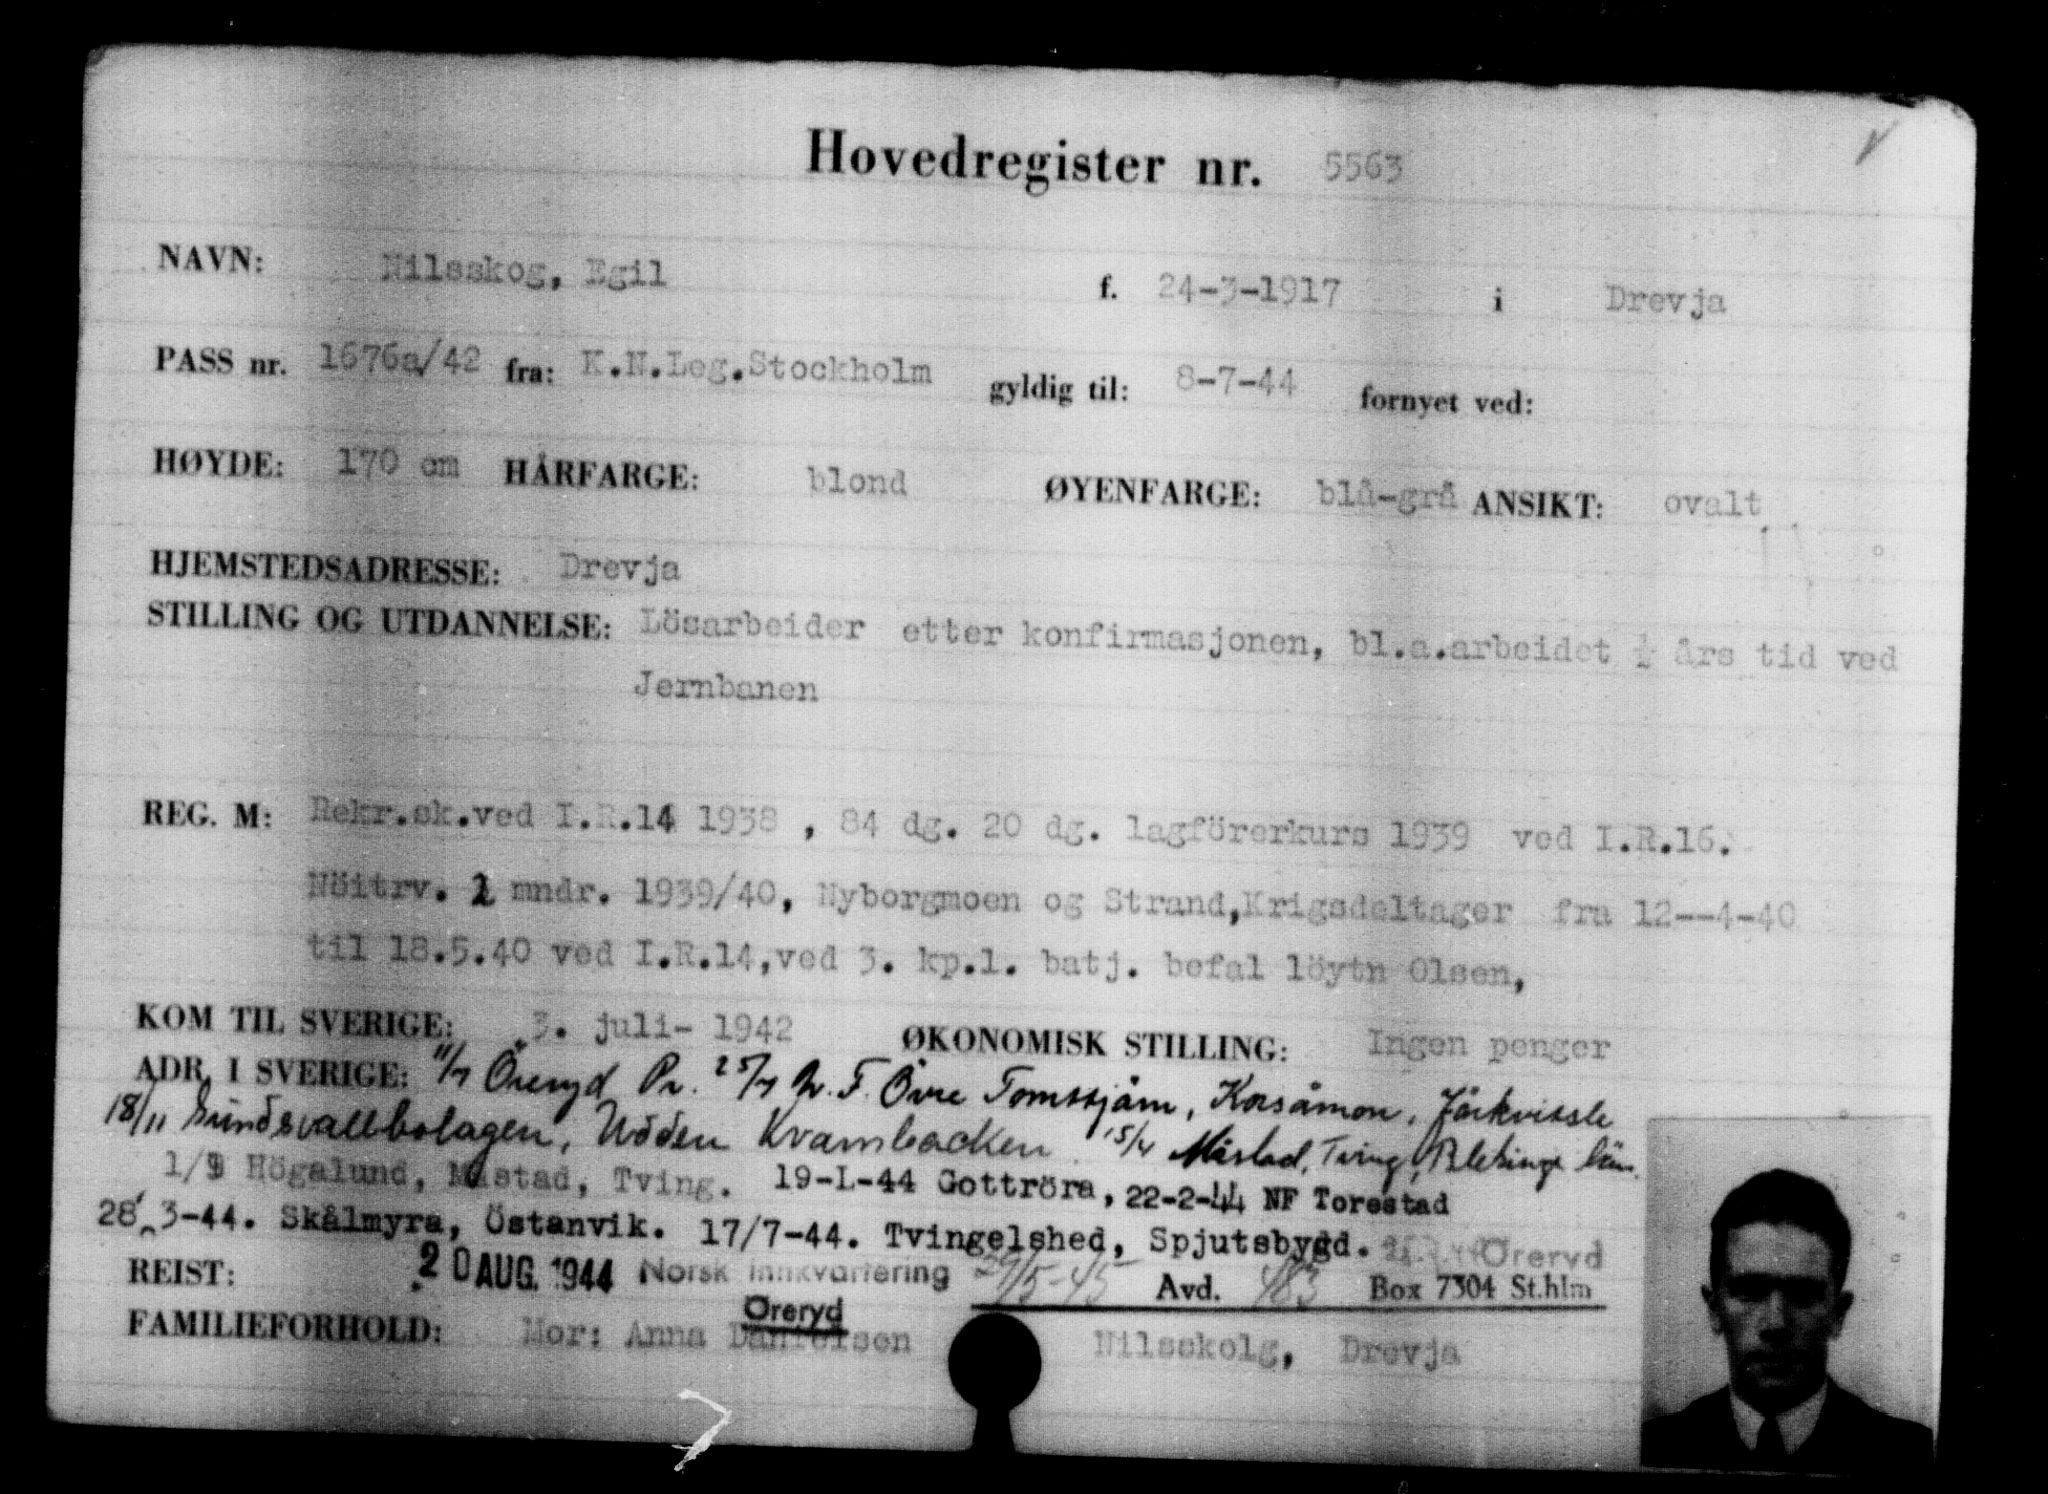 Hovedregister nr. 5563
NAVN: Nilsskog, Egil f. 24-3-1917 i Drevja
PASS nr. 1676a/42 fra: K.N.Leg.Stockholm gyldig til: 8-7-44 fornyet ved:
HØYDE: 170 cm HÅRFARGE: blond ØYENFARGE: blå-grå ANSIKT: ovalt
HJEMSTEDSADRESSE: Drevja
STILLING OG UTDANNELSE: Lösarbeider etter konfirmasjonen, bl.a.arbeidet ½ års tid ved
Jernbanen
REG. M: Rekr.sk.ved I.R.14 1938 , 84 dg. 20 dg. lagförerkurs 1939 ved I.R.16.
Nöitrv. 2 mndr. 1939/40, Nyborgmoen og Strand,Krigsdeltager fra 12--4-40
til 18.5.40 ved I.R.14,ved 3. kp.1. batj. befal löytn Olsen,
KOM TIL SVERIGE: 3. juli- 1942 ØKONOMISK STILLING: Ingen penger
ADR. I SVERIGE: 11/7 Öreryd Pr. 25/7 Övre Tomssjåm, Korsåmon, Järkvissle
18/11 Sundsvallbolagen, Kvarnbacken 15/4 Måstad, Tving, Blekinge län.
1/9 Högalund, Måstad, Tving. 19-1-44 Gottröra, 22-2-44 NF Torestad
28, 3-44. Skålmyra, Östanvik. 17/7-44. Tvingelshed, Spjutsbygd. Öreryd
REIST: 20 AUG. 1944 Norsk Innkvartering 29/5-45 Avd. 483 Box 7304 St.hlm
Öreryd
FAMILIEFORHOLD: Mor: Anna Danielsen Nilsskolg, Drevja